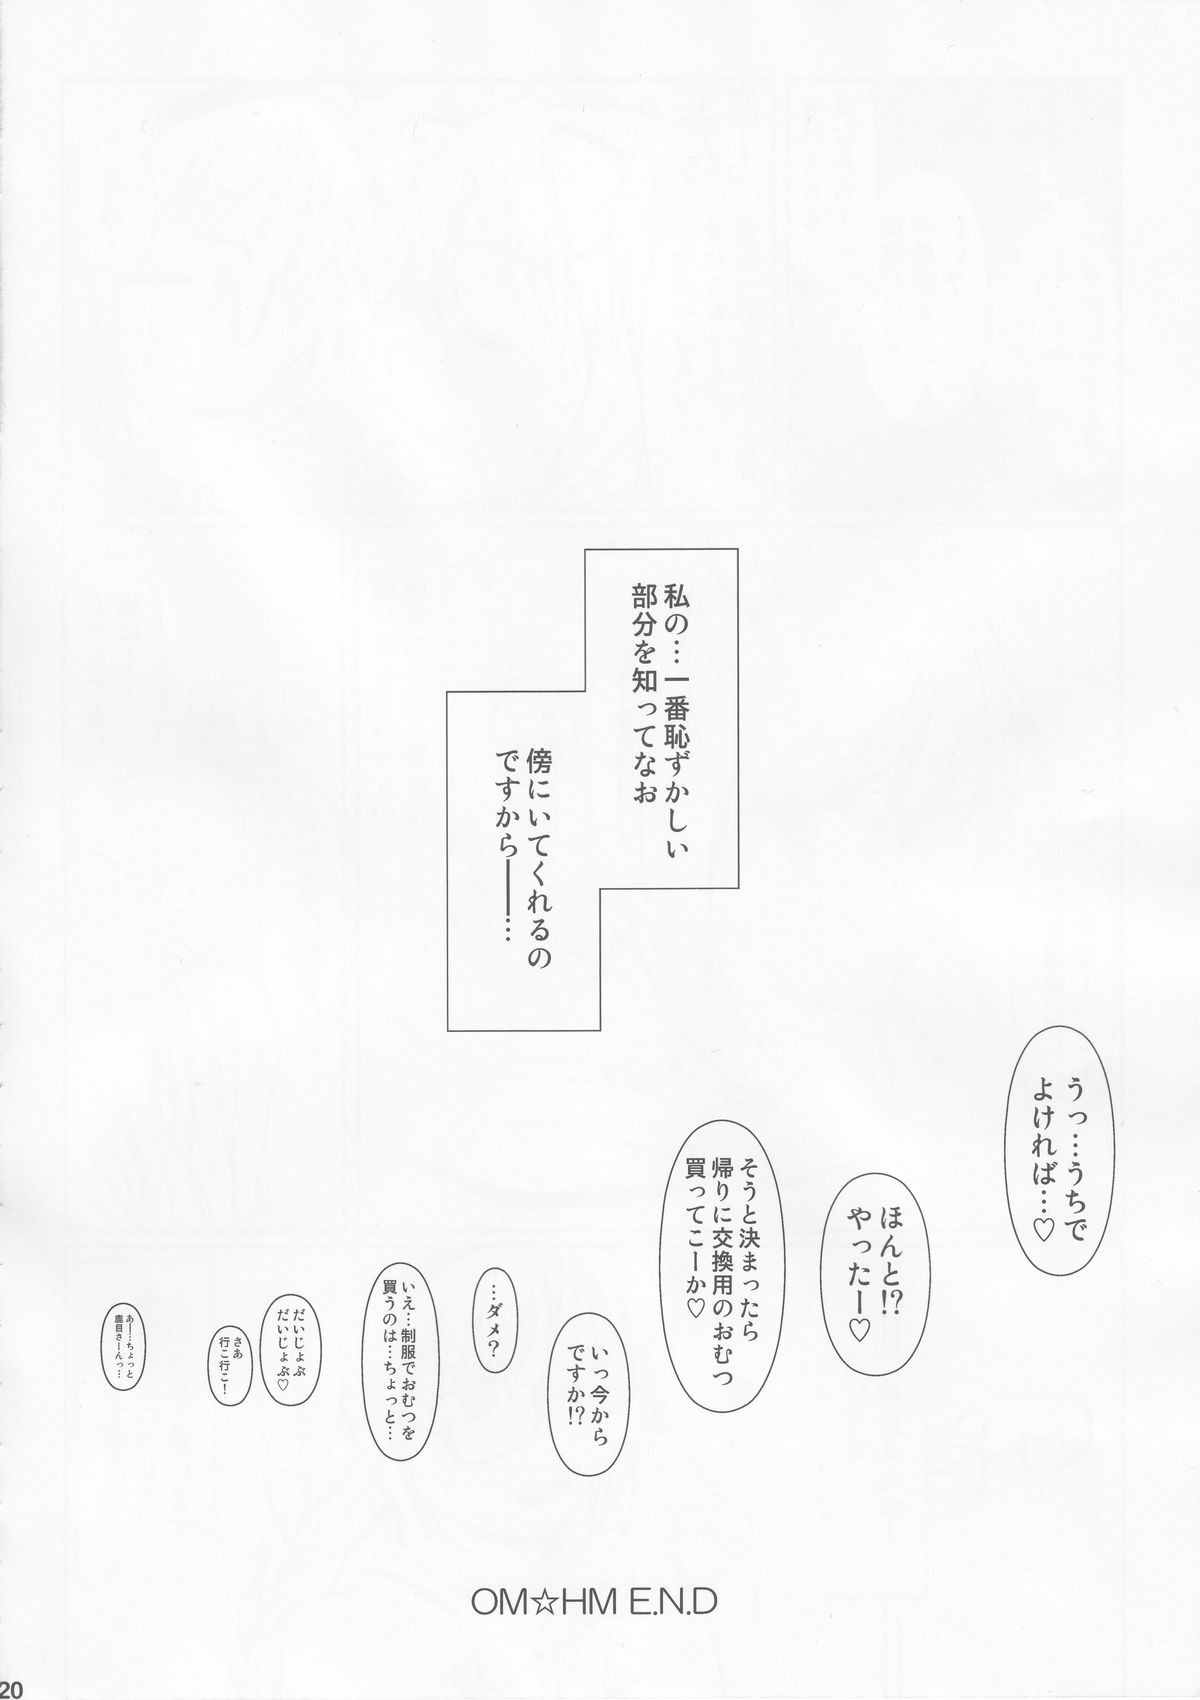 私の…一番恥ずかしい
部分を知ってなお
傍にいてくれるの
ですから――…
うっ…うちで
よければ…♡
ほんと!?
やったー♡
そうと決まったら
帰りに交換用のおむつ
買ってこーか♡
いっ今から
ですか!?
…ダメ?
いえ…制服でおむつを
買うのは…ちょっと…
だいじょぶ
だいじょぶ♡
さあ
行こ行こ!
あー…ちょっと
鹿目さーんっ…
OM☆HM E.N.D
20